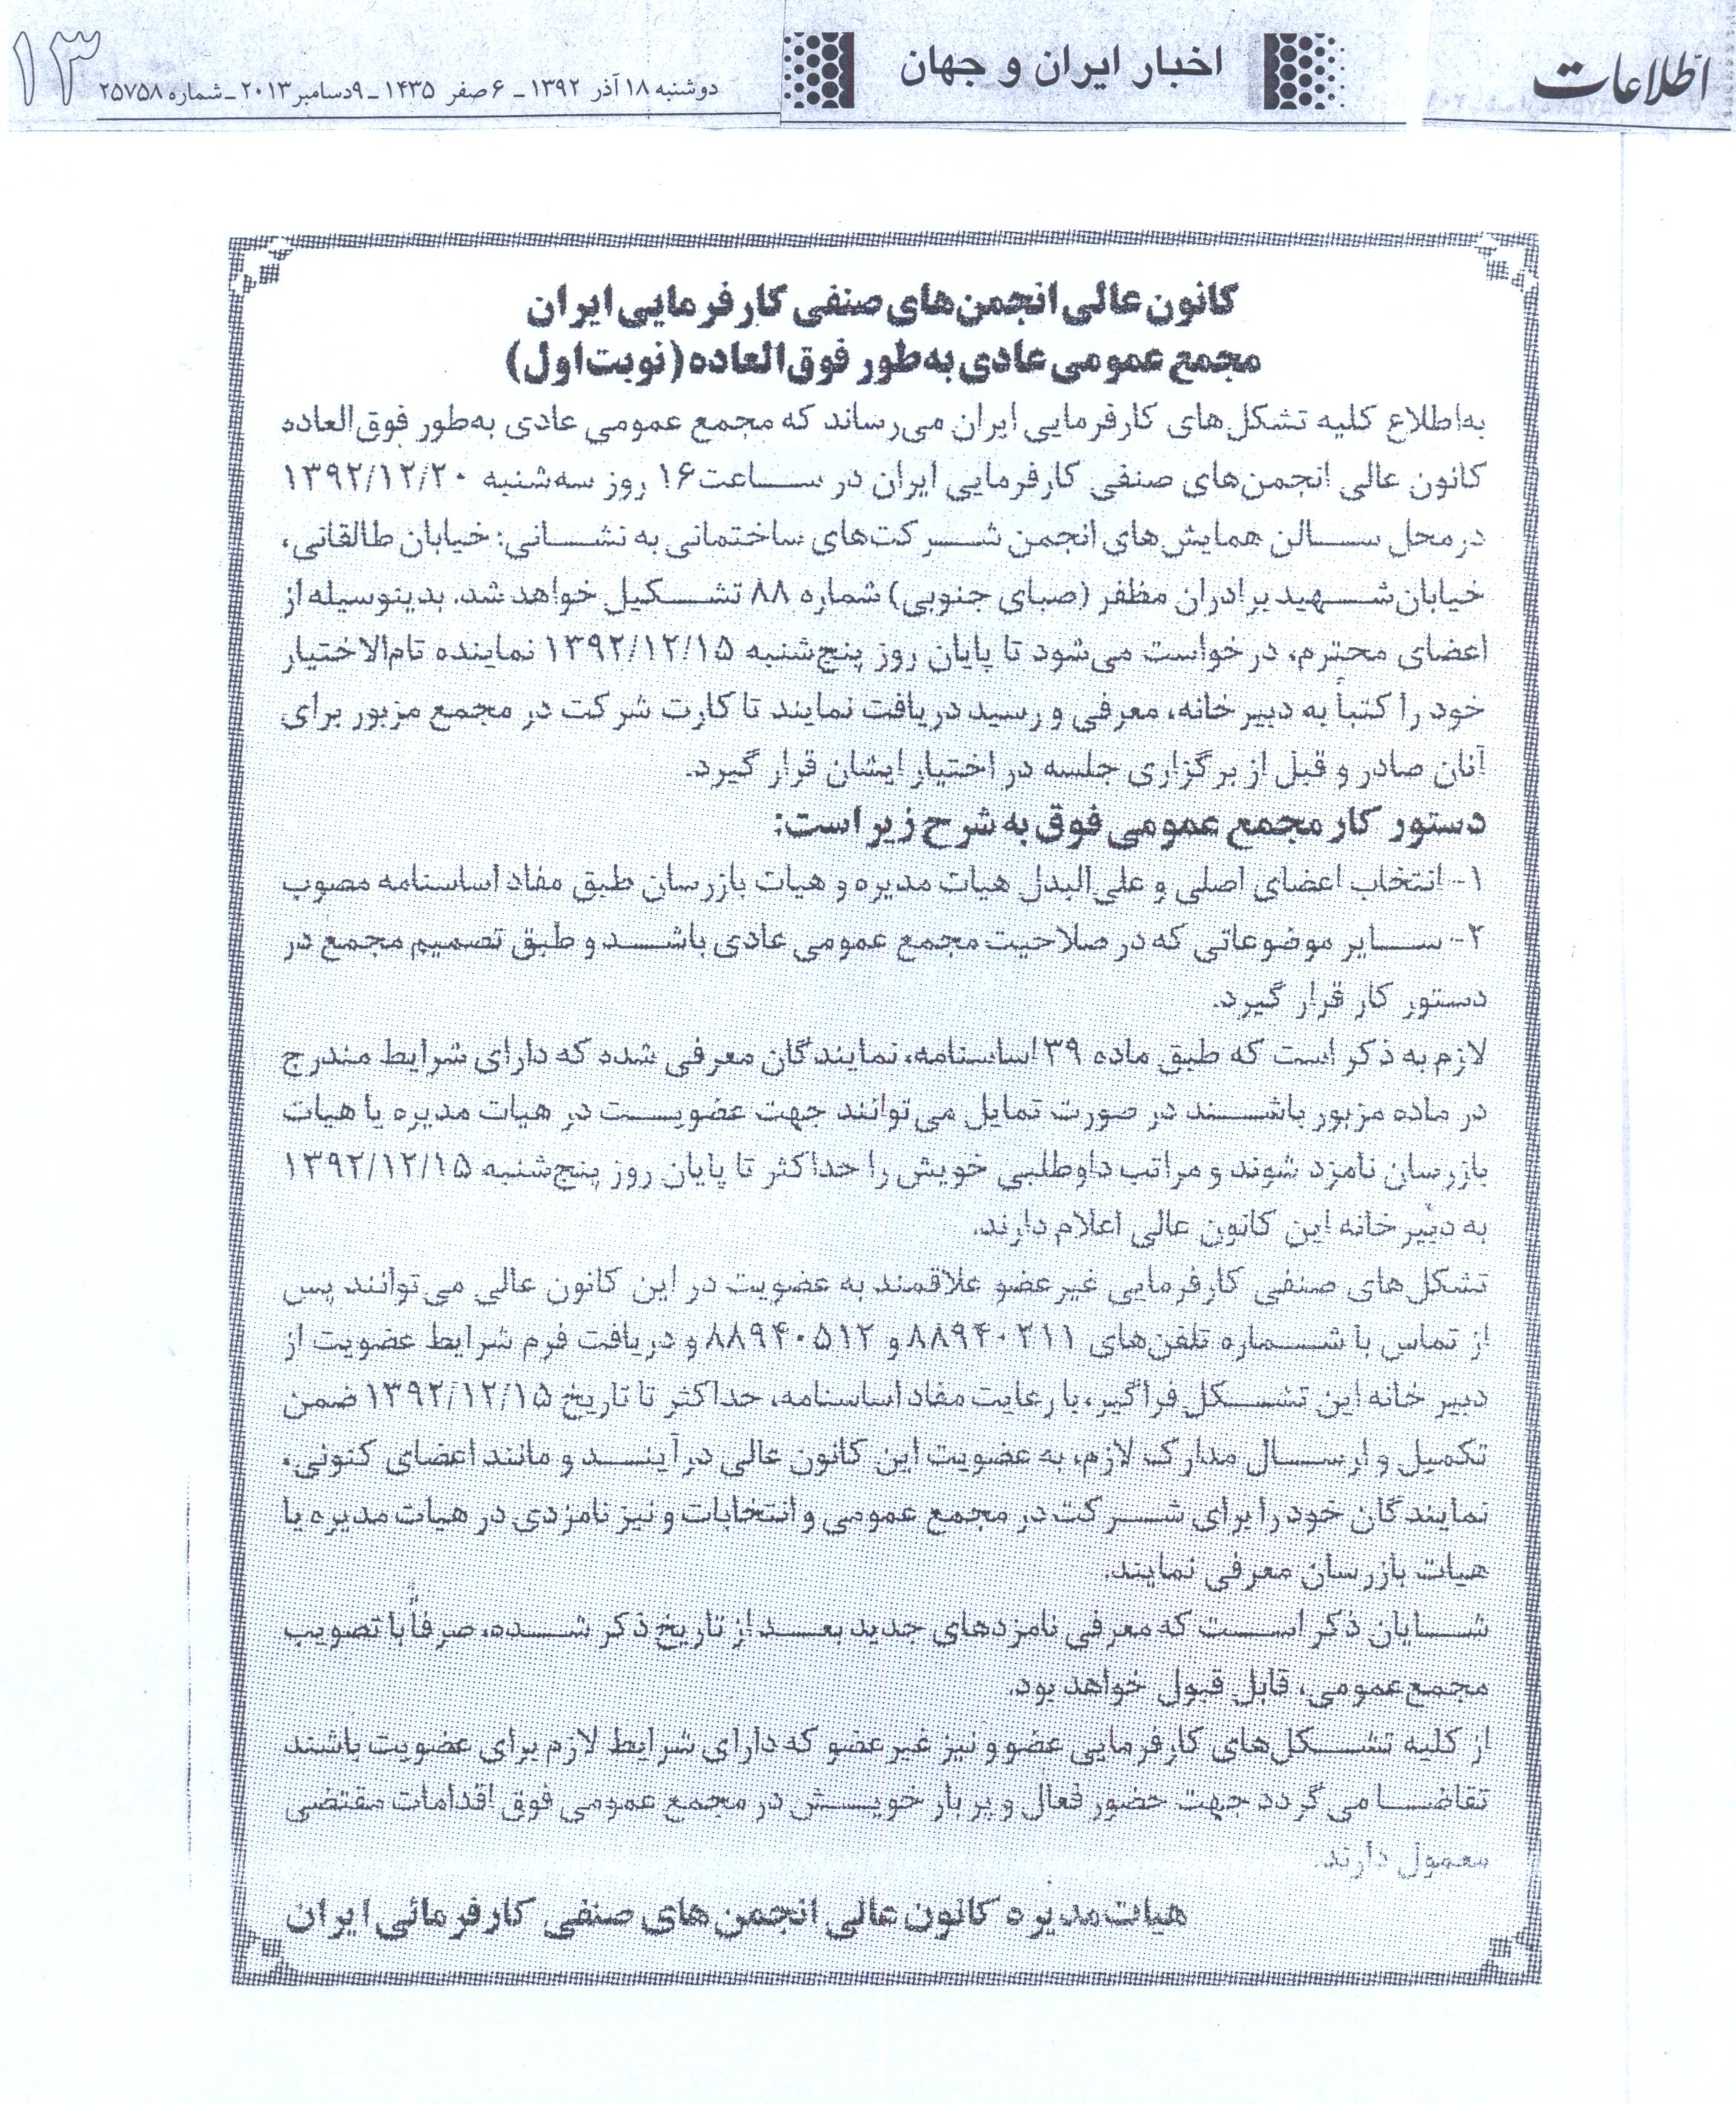 اطلاعات
اخبار ایران و جهان
دوشنبه ۱۸ آذر ۱۳۹۲ ـ ۶ صفر ۱۴۳۵ ـ ۹ دسامبر ۲۰۱۳ ـ شماره ۲۵۷۵۸
۱۳
کانون عالی انجمن‌های صنفی کارفرمایی ایران
مجمع عمومی عادی به‌طور فوق‌العاده (نوبت اول)
به‌اطلاع کلیه تشکل‌های کارفرمایی ایران می‌رساند که مجمع عمومی عادی به‌طور فوق‌العاده
کانون عالی انجمن‌های صنفی کارفرمایی ایران در ساعت ۱۶ روز سه‌شنبه ۱۳۹۲/۱۲/۲۰
در محل سالن همایش‌های انجمن شرکت‌های ساختمانی به نشانی: خیابان طالقانی،
خیابان شهید برادران مظفر (صبای جنوبی) شماره ۸۸ تشکیل خواهد شد. بدینوسیله از
اعضای محترم، درخواست می‌شود تا پایان روز پنج‌شنبه ۱۳۹۲/۱۲/۱۵ نماینده تام‌الاختیار
خود را کتباً به دبیرخانه، معرفی و رسید دریافت نمایند تا کارت شرکت در مجمع مزبور برای
آنان صادر و قبل از برگزاری جلسه در اختیار ایشان قرار گیرد.
دستور کار مجمع عمومی فوق به شرح زیر است:
۱- انتخاب اعضای اصلی و علی‌البدل هیات مدیره و هیات بازرسان طبق مفاد اساسنامه مصوب
۲- سایر موضوعاتی که در صلاحیت مجمع عمومی عادی باشد و طبق تصمیم مجمع در
دستور کار قرار گیرد.
لازم به ذکر است که طبق ماده ۳۹ اساسنامه، نمایندگان معرفی شده که دارای شرایط مندرج
در ماده مزبور باشند در صورت تمایل می‌توانند جهت عضویت در هیات مدیره یا هیات
بازرسان نامزد شوند و مراتب داوطلبی خویش را حداکثر تا پایان روز پنج‌شنبه ۱۳۹۲/۱۲/۱۵
به دبیرخانه این کانون عالی اعلام دارند.
تشکل‌های صنفی کارفرمایی غیرعضو علاقمند به عضویت در این کانون عالی می‌توانند پس
از تماس با شماره تلفن‌های ۸۸۹۴۰۲۱۱ و ۸۸۹۴۰۵۱۲ و دریافت فرم شرایط عضویت از
دبیرخانه این تشکل فراگیر، با رعایت مفاد اساسنامه، حداکثر تا تاریخ ۱۳۹۲/۱۲/۱۵ ضمن
تکمیل و ارسال مدارک لازم، به عضویت این کانون عالی درآیند و مانند اعضای کنونی،
نمایندگان خود را برای شرکت در مجمع عمومی و انتخابات و نیز نامزدی در هیات مدیره یا
هیات بازرسان معرفی نمایند.
شایان ذکر است که معرفی نامزدهای جدید بعد از تاریخ ذکر شده، صرفاً با تصویب
مجمع عمومی، قابل قبول خواهد بود.
از کلیه تشکل‌های کارفرمایی عضو و نیز غیرعضو که دارای شرایط لازم برای عضویت باشند
تقاضا می‌گردد جهت حضور فعال و پربار خویش در مجمع عمومی فوق اقدامات مقتضی
معمول دارند.
هیات مدیره کانون عالی انجمن‌های صنفی کارفرمائی ایران